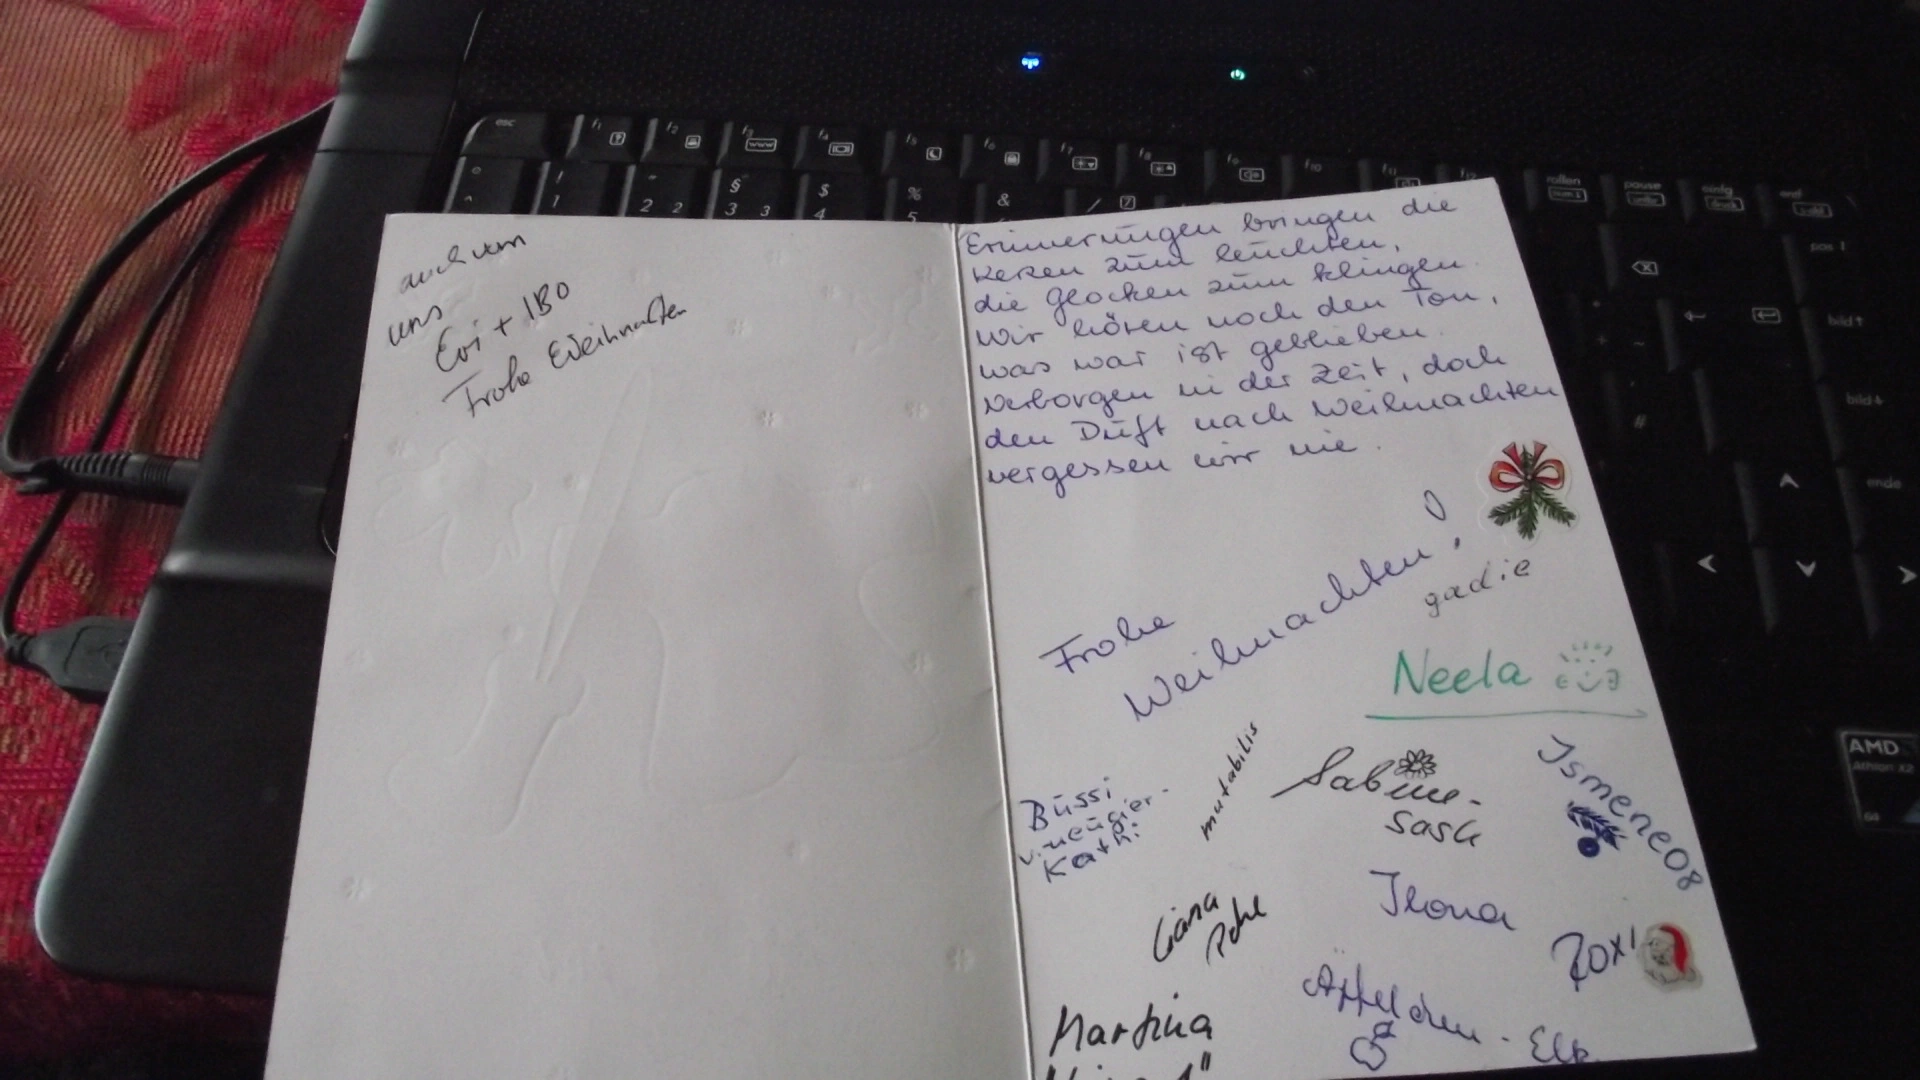 auch von
uns
Evi + IBO
Frohe Weihnachten
Erinnerungen bringen die
Kerzen zum leuchten,
die Glocken zum klingen.
Wir hören noch den Ton,
was war ist geblieben.
Verborgen in der Zeit, doch
den Duft nach Weihnachten
vergessen wir nie.
Frohe
Weihnachten!
gadie
Neela
mutabilis
Sabine-
sash
Ismene08
Büssi
v. neugier-
Kathi
Liana
Ilona
Roxi
Äpfelchen - Elk
Martina
esc
f1
f2
f3
www
f4
f5
f6
f7
f8
f9
f10
f11
f12
rollen
pause
einfg
§
$
%
&
/
1
2 2
3 3
4
5
pos 1
bild↑
bild↓
ende
#
AMD
Athlon X2
64